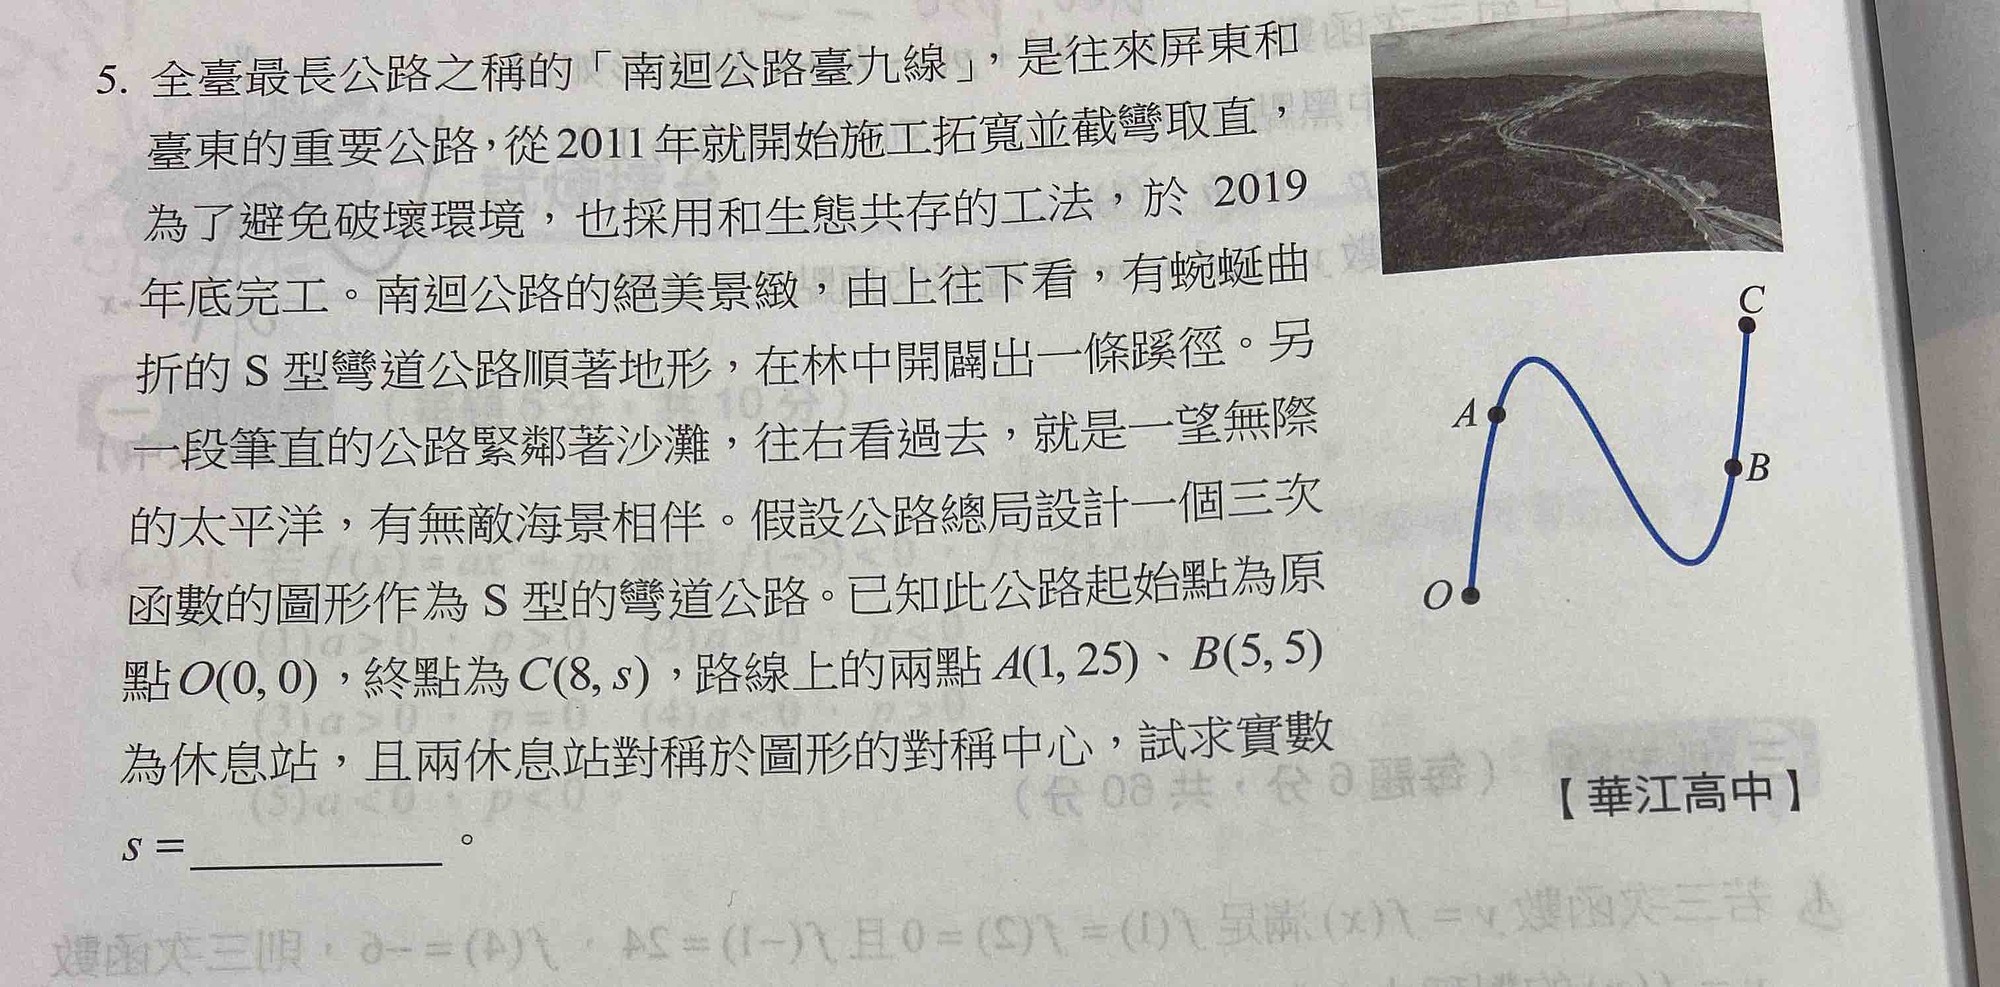 5. 全臺最長公路之稱的「南迴公路臺九線」，是往來屏東和
臺東的重要公路，從2011年就開始施工拓寬並截彎取直，
為了避免破壞環境，也採用和生態共存的工法，於 2019
年底完工。南迴公路的絕美景緻，由上往下看，有蜿蜒曲
折的 S 型彎道公路順著地形，在林中開闢出一條蹊徑。另
一段筆直的公路緊鄰著沙灘，往右看過去，就是一望無際
的太平洋，有無敵海景相伴。假設公路總局設計一個三次
函數的圖形作為 S 型的彎道公路。已知此公路起始點為原
點O(0, 0)，終點為C(8, s)，路線上的兩點 A(1, 25)、B(5, 5)
為休息站，且兩休息站對稱於圖形的對稱中心，試求實數
s = ________。
【華江高中】
C
A
B
O